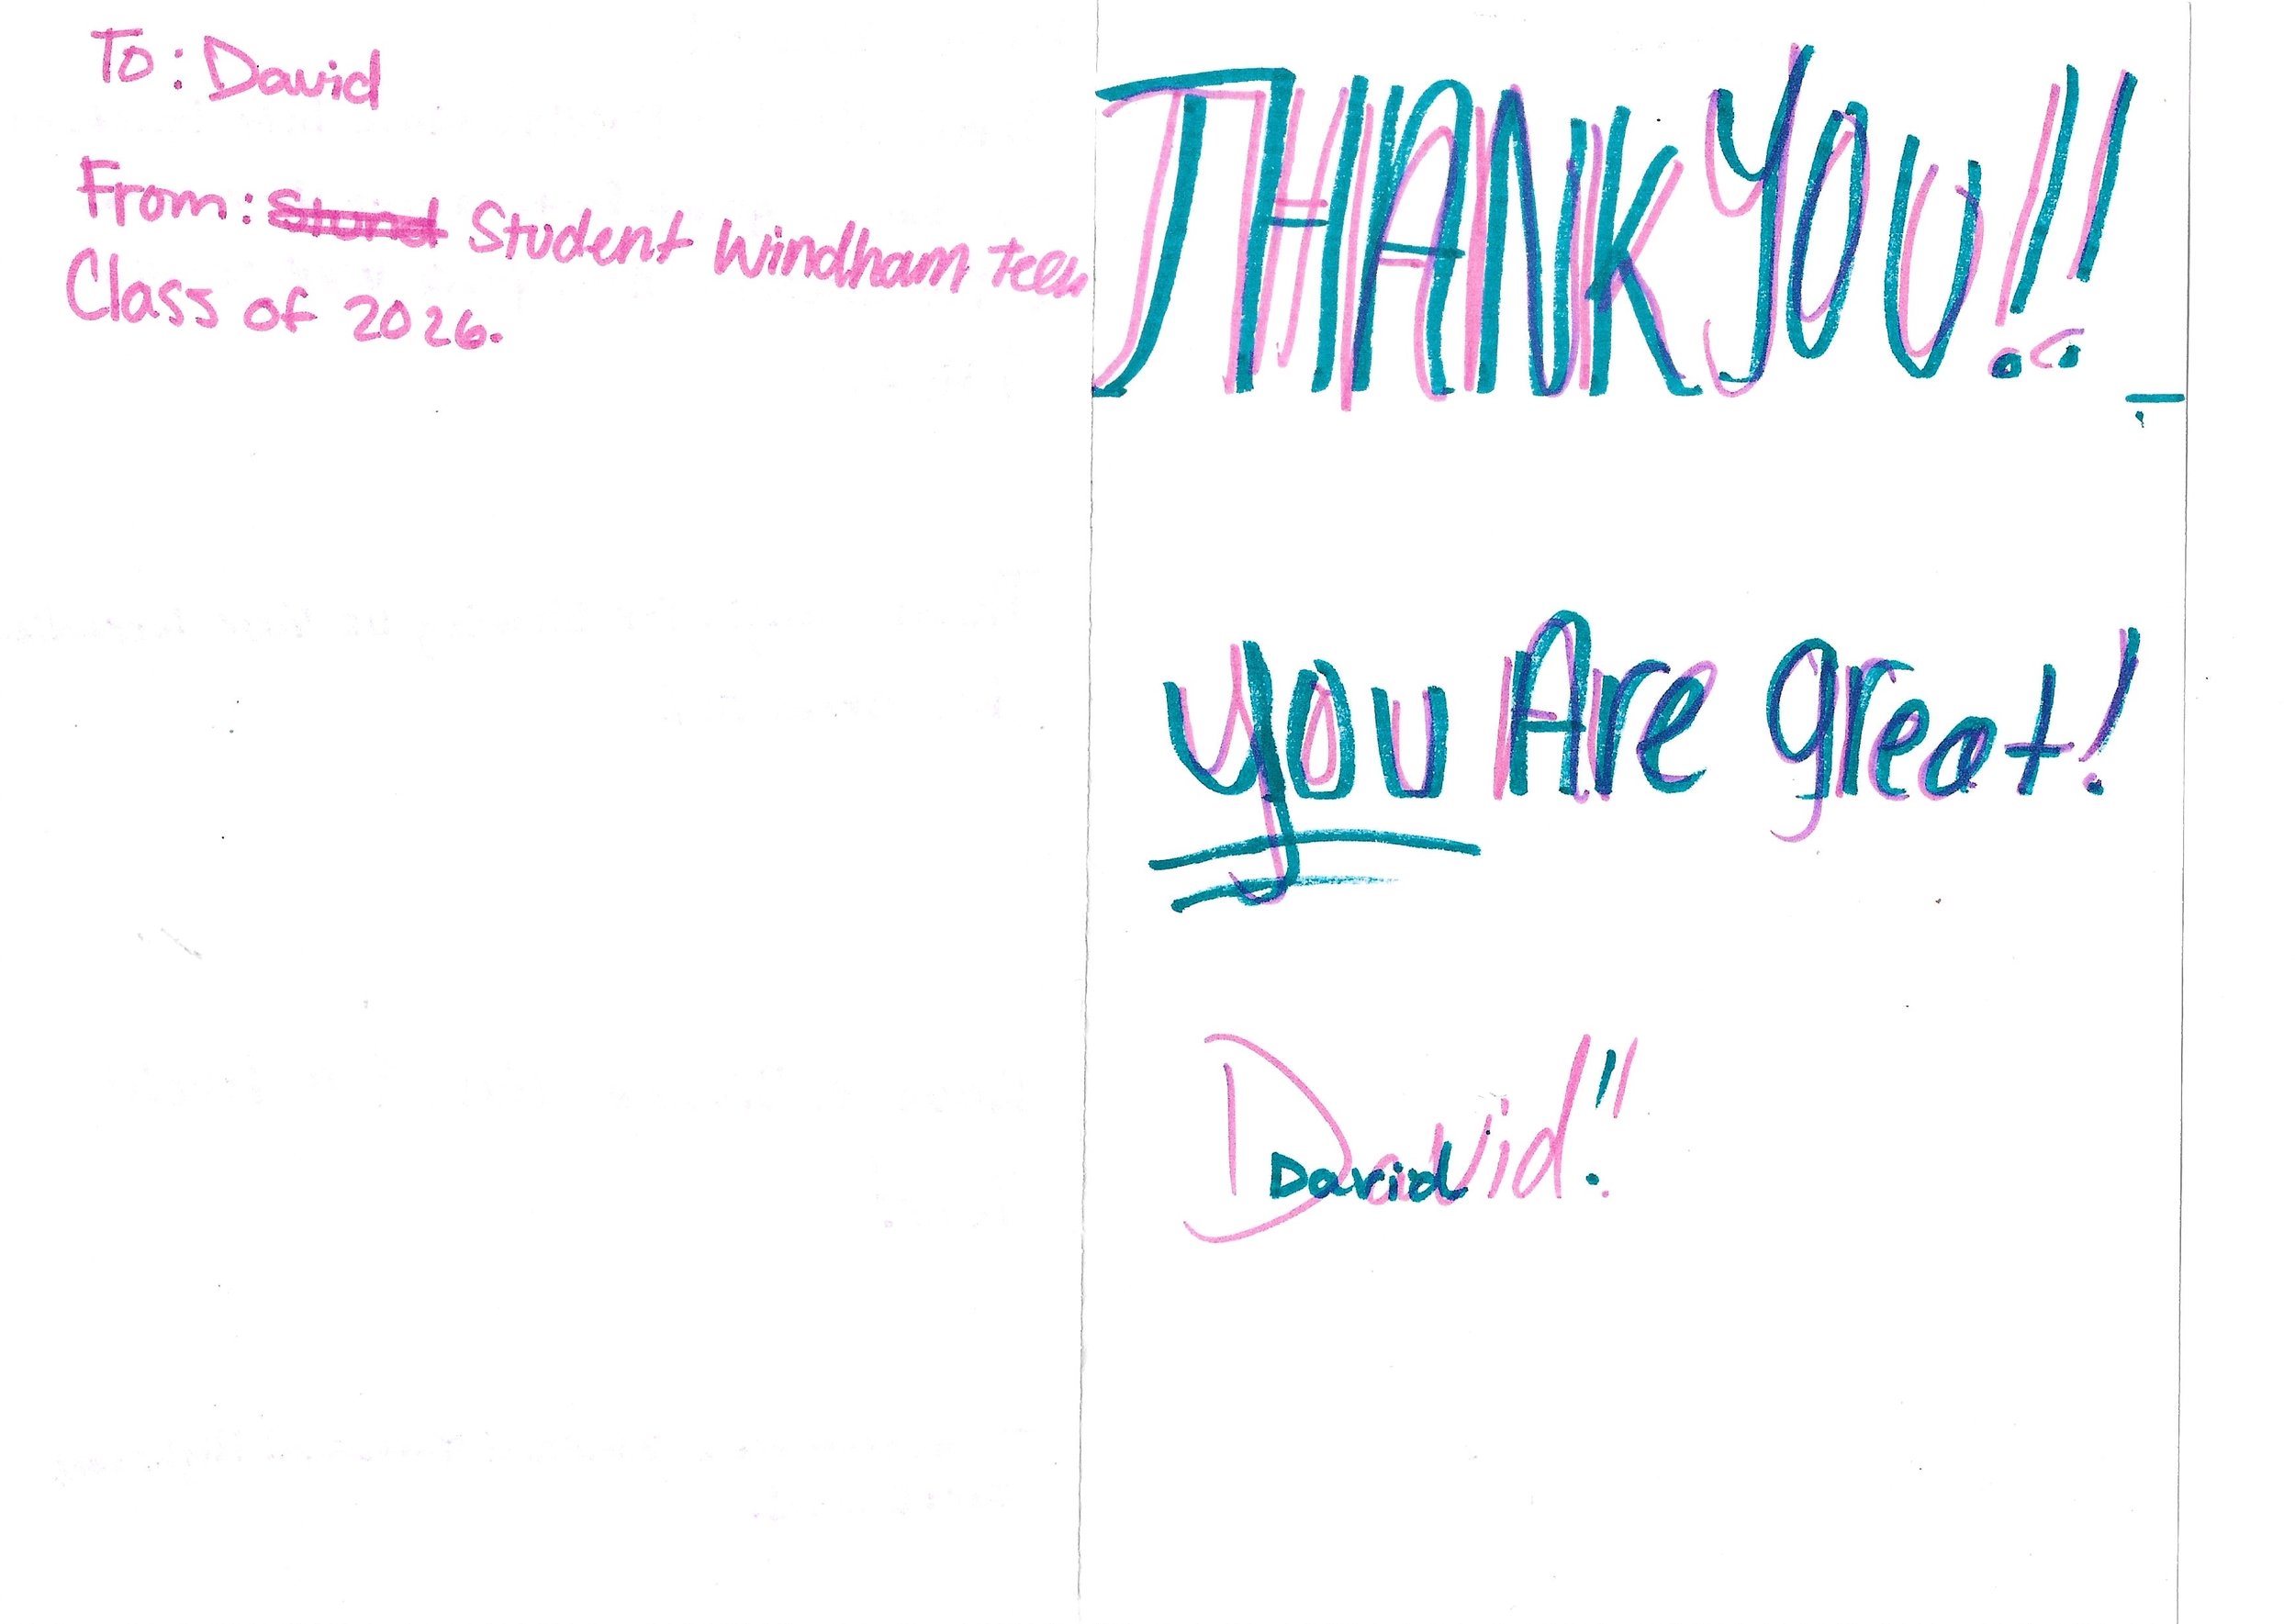 To: David
From: Student Windham Tech
Class of 2026.
THANK YOU!!
you Are great!
David!!
David